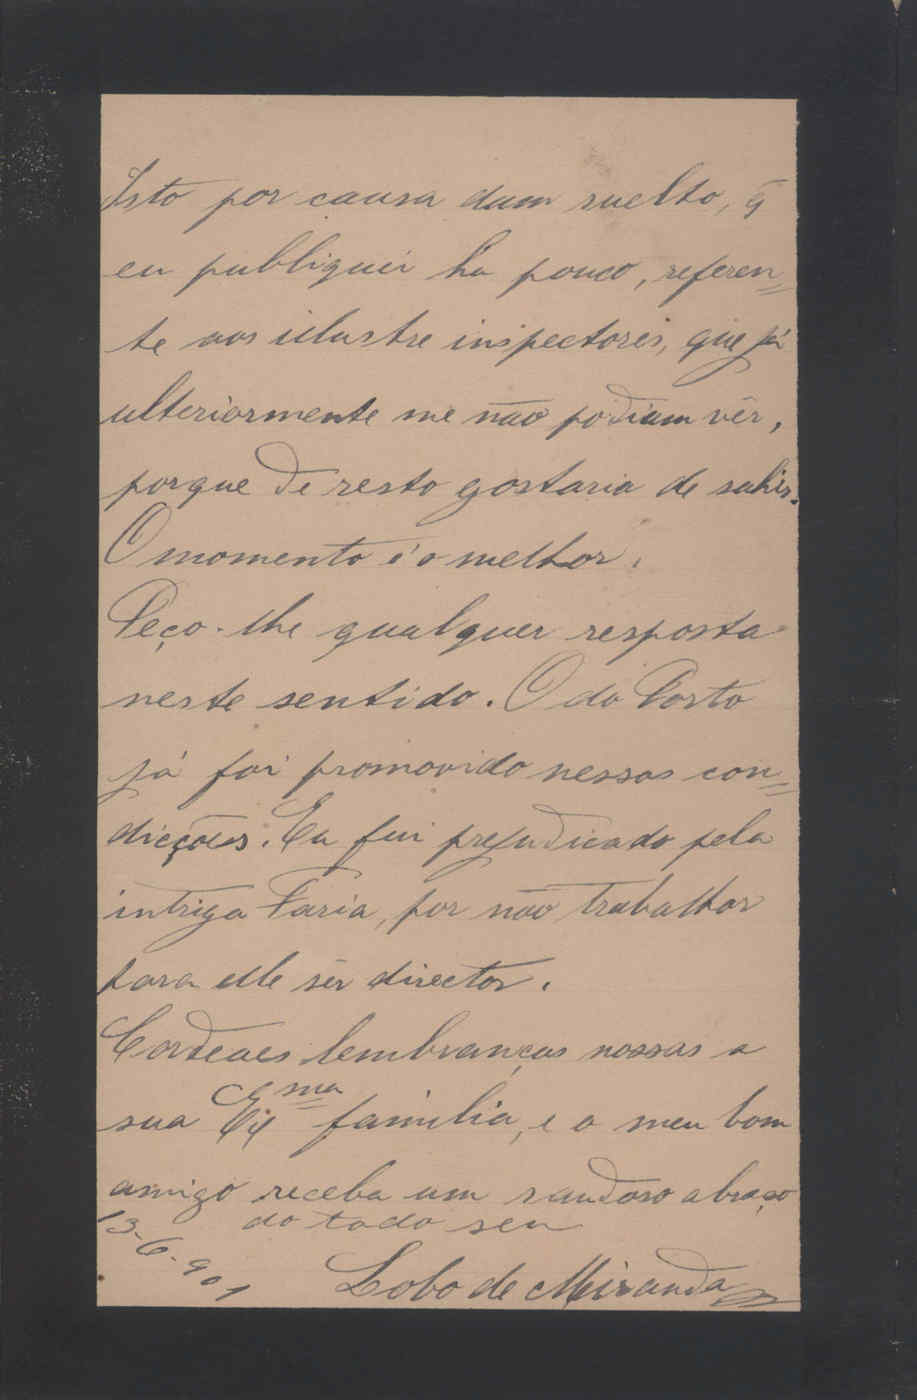 Isto por causa dum suelto, q̃
eu publiquei ha pouco, referen=
te aos illustre inspectores, que já
ulteriormente me não podiam vêr,
porque de resto gostaria de sahir.
O momento é o melhor.
Peço-lhe qualquer resposta
neste sentido. O do Porto
já foi promovido nessas con=
dicções. Eu fui prejudicado pela
intriga Faria, por não trabalhar
para elle sêr director.
Cordeaes lembranças nossas a
sua Ex.ma familia, e o meu bom
amigo receba um saudoso abraço
do todo seu
13-6-901
Lobo de Miranda